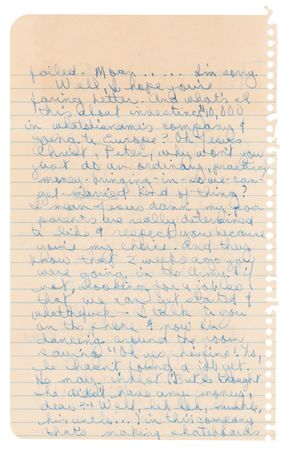 failed. Moan ..... I'm sorry.
Well, I hope you're
faring better. And what's all
this about investing $10,000
in whatshisname's company &
going to Europe? Oh Jesus
Christ, Peter, why won't you
just do an ordinary, practical
money-bringing-in-so-we-can-
get-married kind of thing?
I mean Jesus damn, my poor
parents are really determined
to like & respect you because
you're my choice. And they
know that 2 weeks ago you
were going in the Army if
not, looking for a job so
that we can get started &
whatthefuck — I talk to you
on the phone & now I'm
dancing around the room
saying "Oh yes, he's fine! No,
he hasn't found a job yet.
He may invest (But I thought
he didn't have any money,
dear? Well, heh heh, mumble,
his uncle...) in this company
that's making skateboards